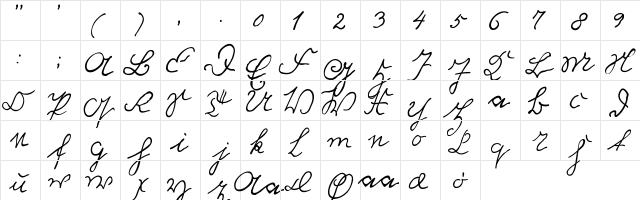 " ' ( ) , . 0 1 2 3 4 5 6 7 8 9
: ; A B C D E F G H I J K L M N
O P Q R S T U V W X Y Z a b c d
e f g h i j k l m n o p q r s t
u v w x y z